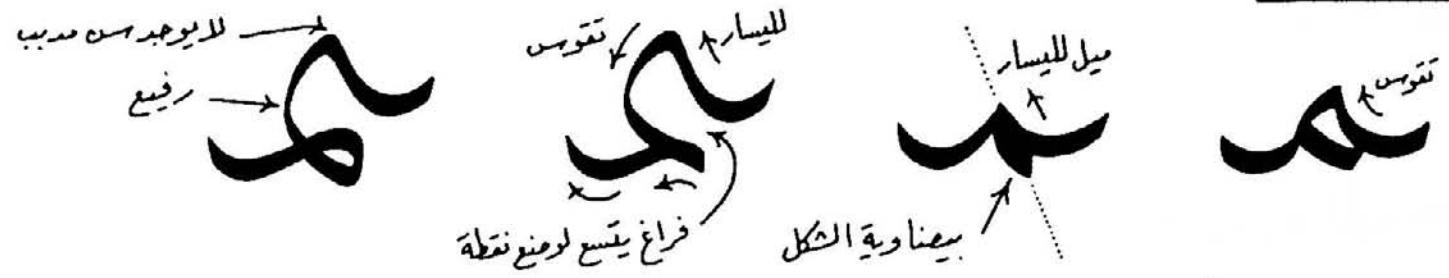 تقوس
ميل لليسار
بيضاوية الشكل
لليسار
تقوس
فراغ يتسع لوضع نقطة
لا يوجد سن مدبب
رفيع